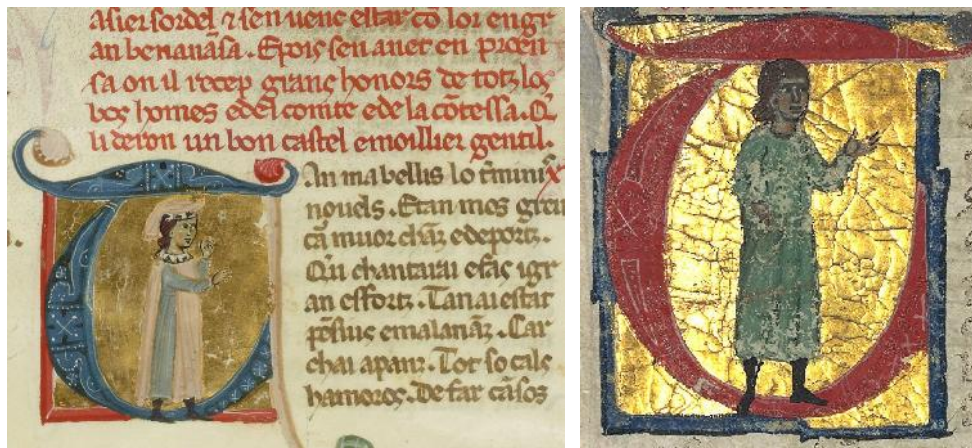 asier sordel ⁊ sen uenc estar cō lor engr
an benanāsa . Epois sen anet en proen
sa on il recep granç honors de totz los
bos homes edel comte ede la cōtessa. Q
li deron un bon castel emoillier gentil.
Tan mabellis lo t̄mini
nouels . Etan mos greu
cā muor chāz edeportz .
Qu chantarai efaç
an effortz . Tan ai estat
pēsius emalanāz . Car
chai apanz . Tot so cals
hamoros . De far cāsos